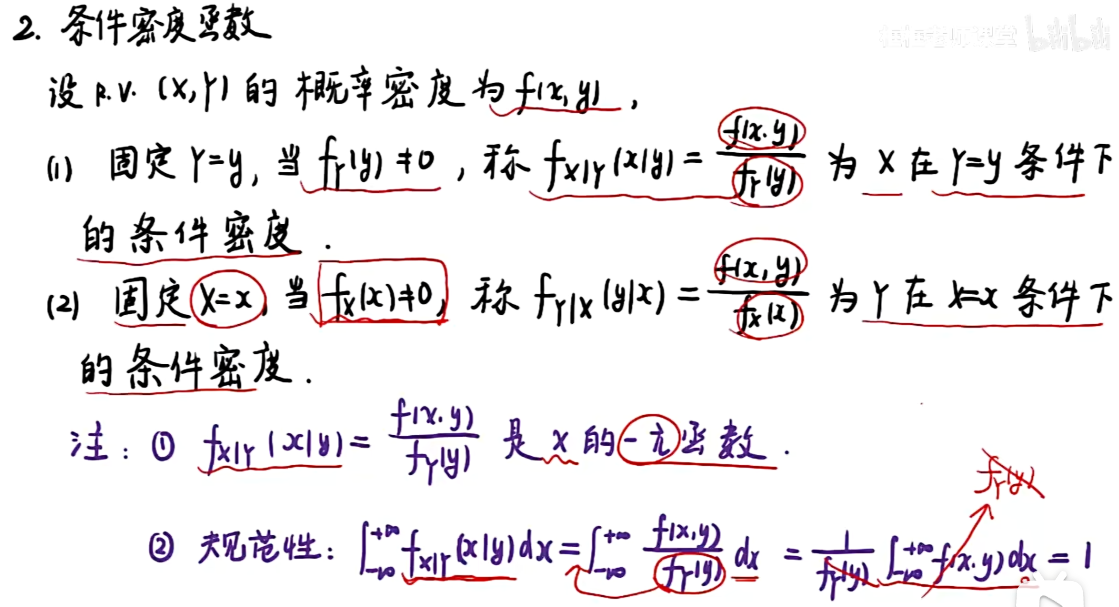 2. 条件密度函数
bilibili
设 R.V. (X,Y) 的概率密度为 f(x,y),
(1) 固定 Y=y, 当 f_Y(y)≠0, 称 f_{X|Y}(x|y) = f(x,y)/f_Y(y) 为 X 在 Y=y 条件下
的条件密度.
(2) 固定 X=x, 当 f_X(x)≠0, 称 f_{Y|X}(y|x) = f(x,y)/f_X(x) 为 Y 在 X=x 条件下
的条件密度.
注: ① f_{X|Y}(x|y) = f(x,y)/f_Y(y) 是 x 的一元函数.
f_Y(y)
② 规范性: ∫_{-∞}^{+∞} f_{X|Y}(x|y)dx = ∫_{-∞}^{+∞} f(x,y)/f_Y(y) dx = 1/f_Y(y) ∫_{-∞}^{+∞} f(x,y)dx = 1